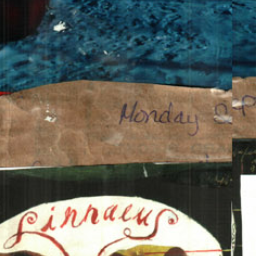 Monday
Linnaeus